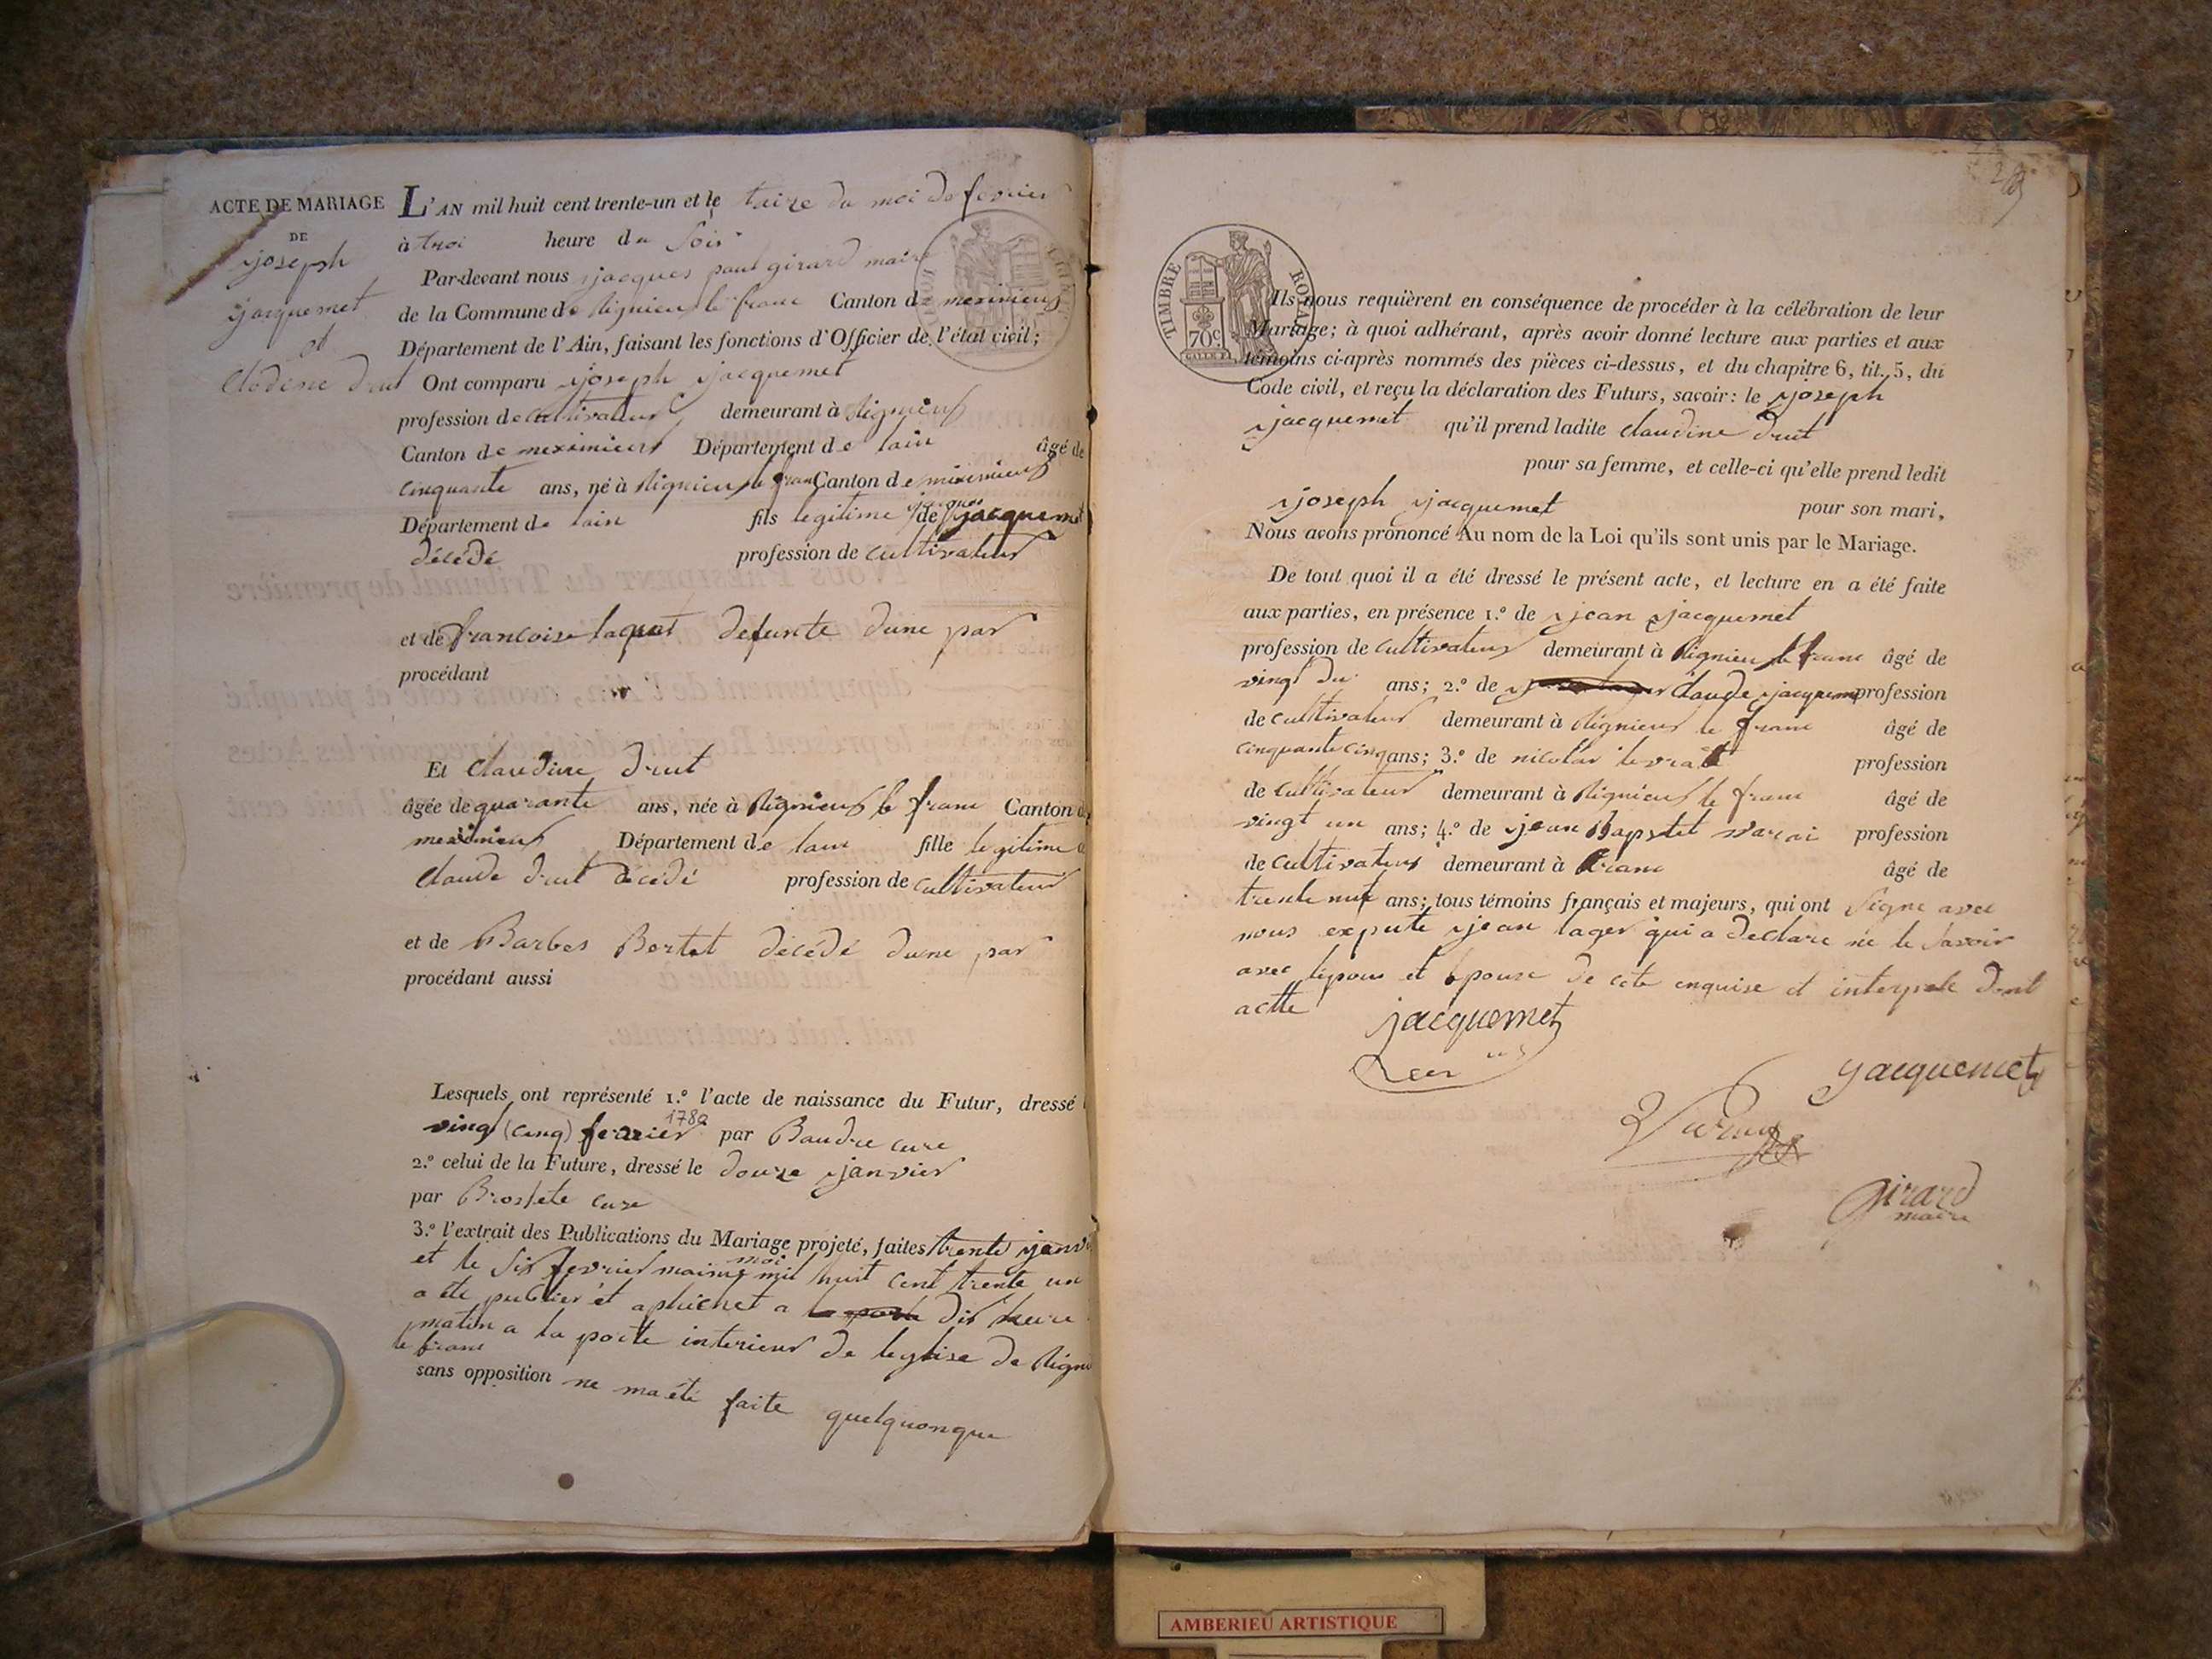 ACTE DE MARIAGE
DE
joseph
jacquemet
et
Clodine Druit
L'AN mil huit cent trente-un et le traize du moi de fevrier
à troi heure du Soir
Par-devant nous jacques paul girard maire
de la Commune de Rignieux le franc Canton de meximieux
Département de l'Ain, faisant les fonctions d'Officier de l'état civil;
Ont comparu joseph jacquemet
profession de cultivateur demeurant à Rignieux
Canton de meximieux Département de lain âgé de
cinquante ans, né à Rignieux le franc Canton de meximieux
jacques
Département de lain fils legitime de jacquemet
décédé profession de cultivateur
et de francoise defunte dune par
procédant
Et Claudine Druit
âgée de quarante ans, née à Rignieux le franc Canton de
meximieux Département de lain fille legitime d
Claude Druit décédé profession de cultivateur
et de Barbes Bertet décédé dune par
procédant aussi
Lesquels ont représenté 1.° l'acte de naissance du Futur, dressé
1780
vingt (cinq) fevrier par Baudre cure
2.° celui de la Future, dressé le douze janvier
par Brossete cure
3.° l'extrait des Publications du Mariage projeté, faites trente janv
et le Six fevrier moi mil huit cent trente un
a été publier et aphichet a la porte dix heure
matin a la porte interieur de leglise de Rigni
le franc
sans opposition ne ma été faite quelquonque
TIMBRE ROYAL
70c
Ils nous requièrent en conséquence de procéder à la célébration de leur
Mariage; à quoi adhérant, après avoir donné lecture aux parties et aux
témoins ci-après nommés des pièces ci-dessus, et du chapitre 6, tit. 5, du
Code civil, et reçu la déclaration des Futurs, savoir: le joseph
jacquemet qu'il prend ladite claudine Druit
pour sa femme, et celle-ci qu'elle prend ledit
joseph jacquemet pour son mari,
Nous avons prononcé Au nom de la Loi qu'ils sont unis par le Mariage.
De tout quoi il a été dressé le présent acte, et lecture en a été faite
aux parties, en présence 1.° de jean jacquemet
profession de cultivateur demeurant à Rignieu le franc âgé de
vingt ans; 2.° de Claude jacquemet profession
de cultivateur demeurant à Rignieux le franc âgé de
cinquante cinq ans; 3.° de nicolas levrat profession
de cultivateur demeurant à Rignieux le franc âgé de
vingt un ans; 4.° de jean Bapstet profession
de cultivateur demeurant à franc âgé de
trente ans; tous témoins français et majeurs, qui ont Signe avec
nous expute jean lager qui a declare ne le Savoir
avec lepoux et epouse de cete enquise et interpele dont
actte
jacquemet
jacquemet
Girard
maire
AMBERIEU ARTISTIQUE